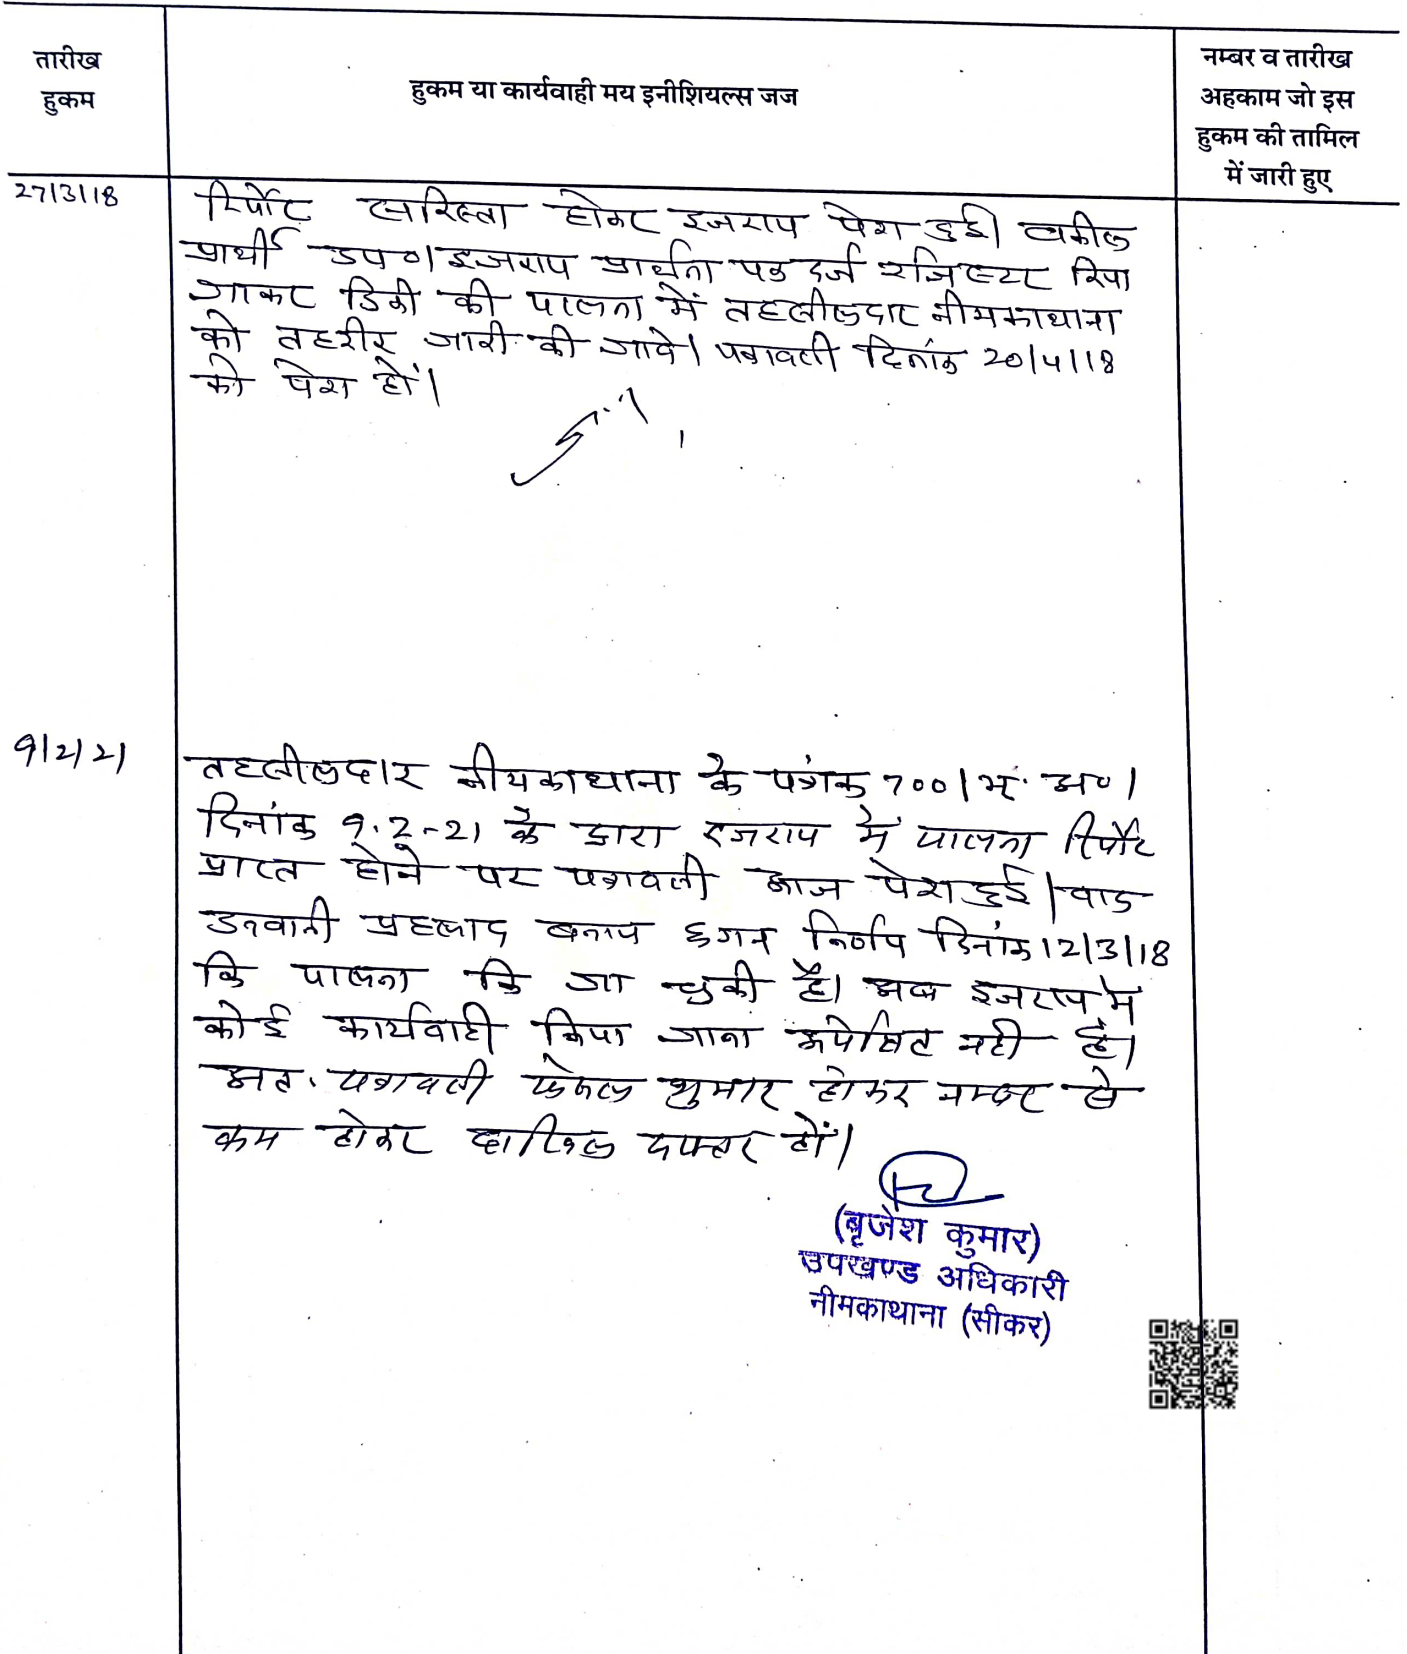 तारीख
हुकम
हुकम या कार्यवाही मय इनीशियल्स जज
नम्बर व तारीख
अहकाम जो इस
हुकम की तामिल
में जारी हुए
27/3/18
रिर्पोट सरिस्ता होकर इजराय पेश हुई। वकील
प्रार्थी उप०। इजराय प्रार्थना पत्र दर्ज रजिस्टर किया
जाकर डिक्री की पालना में तहसीलदार नीमकाथाना
को तहरीर जारी की जावे। पत्रावली दिनांक 20/4/18
को पेश हों।
9/2/21
तहसीलदार नीमकाथाना के पत्रांक 700/भू. अ०/
दिनांक 9.2-21 के द्वारा इजराय में पालना रिर्पोट
प्राप्त होने पर पत्रावली आज पेश हुई। वाद
उनवानी प्रहलाद बनाम छगन निर्णय दिनांक 12/3/18
कि पालना कि जा चुकी है। अब इजराय में
कोई कार्यवाही किया जाना अपेक्षित नही है।
अतः पत्रावली फैसल शुमार होकर नम्बर से
कम होकर दाखिल दफ्तर हों।
(बृजेश कुमार)
उपखण्ड अधिकारी
नीमकाथाना (सीकर)